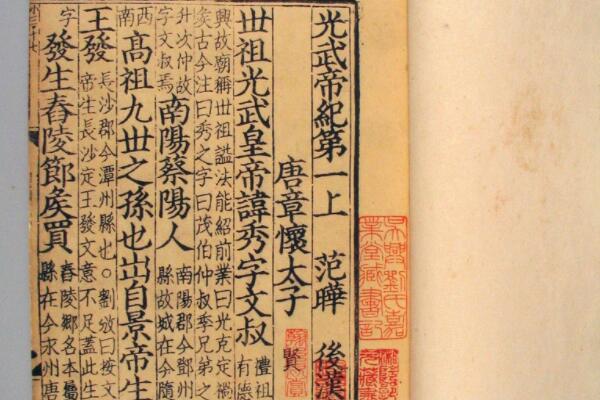 光武帝紀第一上 范曄 後漢
唐章懷太子賢
丗祖光武皇帝諱秀字文叔 禮祖 有德
興故廟稱丗祖謚法能紹前業曰光克定禍
矦古今注曰秀之字曰茂伯仲叔季兄弟之
升次仲故 字文叔焉 南陽蔡陽人 南陽郡今鄧州 縣故城在今隨
西 南 高祖九丗之孫也出自景帝生
王發 長沙郡今潭州縣也○劉攽曰按文 帝生長沙定王發文意不足蓋此生
字 發生舂陵節矦買 舂陵鄉名本屬 縣在今永州唐
吳興劉氏嘉
業堂藏書記